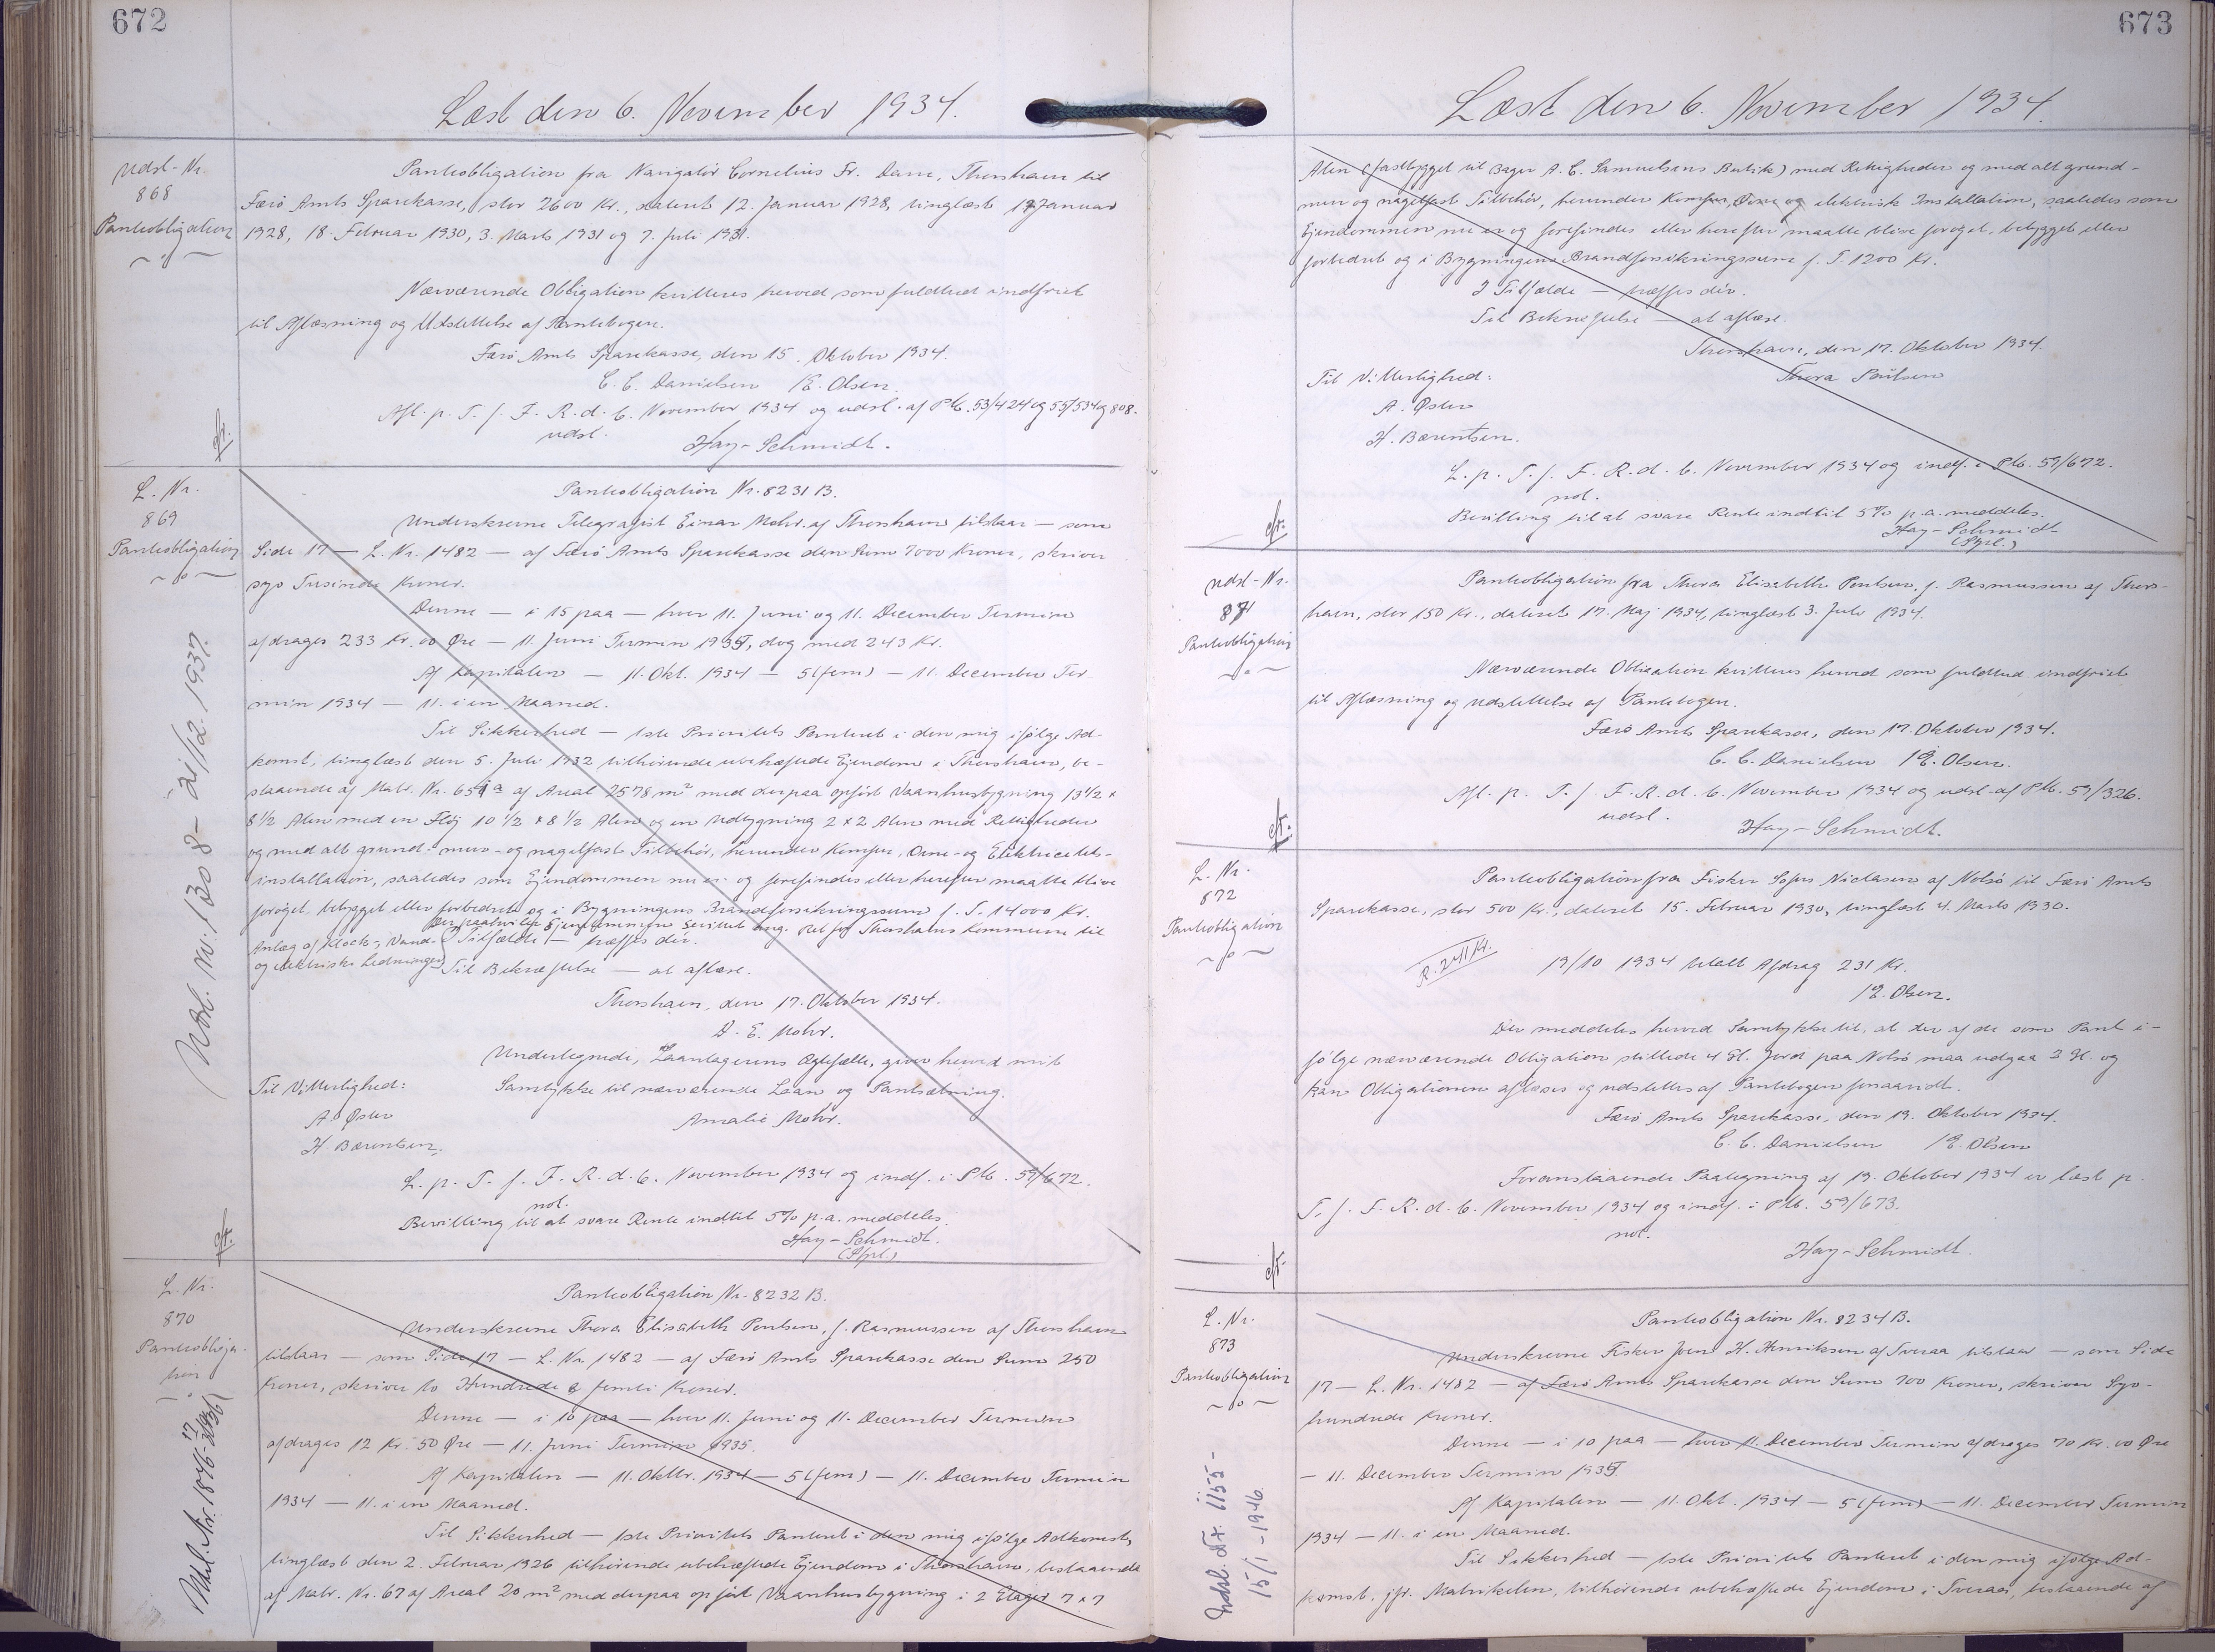 672
Læst den 6. November 1934.
Udsl-Nr.
868
Panteobligation
Panteobligation fra Navigatör Cornelius Fr. Dam, Thorshavn til
Færö Amts Sparekasse, stor 2600 Kr., dateret 12. Januar 1928, tinglæst 17 Januar
1928, 18. Februar 1930, 3. Marts 1931 og 7. Juli 1931.
Nærværende Obligation kvitteres herved som fuldtud indfriet
til Aflæsning og Udslettelse af Pantebogen.
Færö Amts Sparekasse, den 15. Oktober 1934.
C. C. Danielsen /E. Olsen.
Afl. p. T. f. F. R. d. 6. November 1934 og udsl. af Ptb. 53/424 og 55/534 og 808.
udsl.
Hay-Schmidt.
L. Nr.
869
Panteobligation
~ o ~
Udsl. Nr. 1308 - 21/12 1937.
Panteobligation Nr. 8231 B.
Underskrevne Telegrafist Einar Mohr af Thorshavn tilstaar — som
Side 17 — L. Nr. 1482 — af Færö Amts Sparekasse den Sum 7000 Kroner, skriver
syv Tusinde Kroner.
Denne — i 15 paa — hver 11. Juni og 11. December Termin
afdrages 233 Kr. 00 Øre — 11. Juni Termin 1935, dog med 243 Kr.
Af Kapitalen — 11. Okt. 1934 — 5 (fem) — 11. December Ter
min 1934 — 11. i en Maaned.
Til Sikkerhed — 1ste Prioritets Panteret i den mig ifölge Ad-
komst, tinglæst den 5. Juli 1932 tilhörende ubehæftede Ejendom i Thorshavn, be-
staaende af Matr. Nr. 651 a af Areal 2578 m² med derpaa opfört Vaanhusbygning 13 1/2 x
8 1/2 Alen med en Flöj 10 1/2 x 8 1/2 Alen og en Udbygning 2 x 2 Alen med Rettigheder
og med alt grund- mur- og nagelfast Tilbehör, herunder Komfur, Ovne- og Elektricitets-
installation, saaledes som Ejendommen nu er og forefindes eller herefter maatte blive
foröget, bebygget eller forbedret og i Bygningens Brandforsikringssum f. T. 14000 Kr.
Der paahviler Ejendommen Servitut ang. Ret for Thorshavns Kommune til
Anlæg af Kloak-, Vand-
og elektriske Ledninger.
I Tilfælde — træffes der.
Til Bekræftelse — at aflæse.
Thorshavn, den 17. Oktober 1934.
D. E. Mohr.
Undertegnede, Laantagerens Ægtefælle, giver herved mit
Samtykke til nærværende Laan og Pantsætning.
Til Vitterlighed:
A. Øster
H. Bærentsen.
Amalie Mohr.
L. p. T. f. F. R. d. 6. November 1934 og indf. i Ptb. 59/672.
not.
Bevilling til at svare Rente indtil 5% p.a. meddeles.
Hay-Schmidt.
(Spl.)
L. Nr.
870
Panteobliga-
tion
Panteobligation Nr. 8232 B.
Underskrevne Thora Elisabeth Poulsen, f. Rasmussen af Thorshavn
tilstaar — som Side 17 — L. Nr. 1482 — af Færö Amts Sparekasse den Sum 250
Kroner, skriver to Hundrede & femti Kroner.
Denne — i 10 paa — hver 11. Juni og 11. December Termin
afdrages 12 Kr. 50 Øre — 11. Juni Termin 1935.
Af Kapitalen — 11. Oktbr. 1934 — 5 (fem) — 11. December Termin
1934 — 11. i en Maaned.
Til Sikkerhed — 1ste Prioritets Panteret i den mig ifölge Adkomst,
tinglæst den 2. Februar 1926 tilhörende ubehæftede Ejendom i Thorshavn, bestaaende
af Matr. Nr. 67 af Areal 20 m² med derpaa opfört Vaanhusbygning i 2 Etager 7 x 7
673
Læst den 6. November 1934.
Alen (fastbygget til Bager A. C. Samuelsens Butik) med Rettigheder og med alt grund-
mur og nagelfast Tilbehör, herunder Komfur, Ovne og elektrisk Installation, saaledes som
Ejendommen nu er og forefindes eller herefter maatte blive foröget, bebygget eller
forbedret og i Bygningens Brandforsikringssum f. T. 1200 Kr.
I Tilfælde — træffes der.
Til Bekræftelse — at aflæse.
Thorshavn, den 17. Oktober 1934.
Thora Poulsen
Til Vitterlighed:
A. Øster
H. Bærentsen.
L. p. T. f. F. R. d. 6. November 1934 og indf. i Ptb. 59/672.
not.
Bevilling til at svare Rente indtil 5% p.a. meddeles.
Hay-Schmidt
(Spl.)
Udsl-Nr.
871
Panteobligation
Panteobligation fra Thora Elisabeth Poulsen, f. Rasmussen af Thors-
havn, stor 150 Kr., dateret 17. Maj 1934, tinglæst 3. Juli 1934.
Nærværende Obligation kvitteres herved som fuldtud indfriet
til Aflæsning og Udslettelse af Pantebogen.
Færö Amts Sparekasse, den 17. Oktober 1934.
C. C. Danielsen /E. Olsen.
Afl. p. T. f. F. R. d. 6. November 1934 og udsl. af Ptb. 59/326.
udsl.
Hay-Schmidt.
L. Nr.
872
Panteobligation
~ o ~
Panteobligation fra Fisker Sofus Niclasen af Nolsö til Færö Amts
Sparekasse, stor 500 Kr., dateret 15. Februar 1930, tinglæst 4. Marts 1930.
R. 241 Kr.
19/10 1934 betalt Afdrag 231 Kr.
/E. Olsen.
Der meddeles herved Samtykke til, at der af de som Pant i-
fölge nærværende Obligation stillede 4 Gl. Jord paa Nolsö maa udgaa 2 Gl. og
kan Obligationen aflæses og udslettes af Pantebogen forsaavidt.
Færö Amts Sparekasse, den 19. Oktober 1934.
C. C. Danielsen /E. Olsen
Foranstaaende Paategning af 19. Oktober 1934 er læst p.
T. f. F. R. d. 6. November 1934 og indf. i Ptb. 59/673.
not.
Hay-Schmidt.
L. Nr.
873
Panteobligation
~ o ~
Udsl. Nr. 1155 -
15/1 - 1946.
Panteobligation Nr. 8234 B.
Underskrevne Fisker Joen H. Henriksen af Tveraa tilstaar — som Side
17 — L. Nr. 1482 — af Færö Amts Sparekasse den Sum 700 Kroner, skriver Syv-
hundrede Kroner.
Denne — i 10 paa — hver 11. December Termin afdrages 70 Kr. 00 Øre
— 11. December Termin 1935.
Af Kapitalen — 11. Okt. 1934 — 5 (fem) — 11. December Termin
1934 — 11. i en Maaned.
Til Sikkerhed — 1ste Prioritets Panteret i den mig ifölge Ad-
komst, jfr. Matrikelen, tilhörende ubehæftede Ejendom i Tveraa, bestaaende af